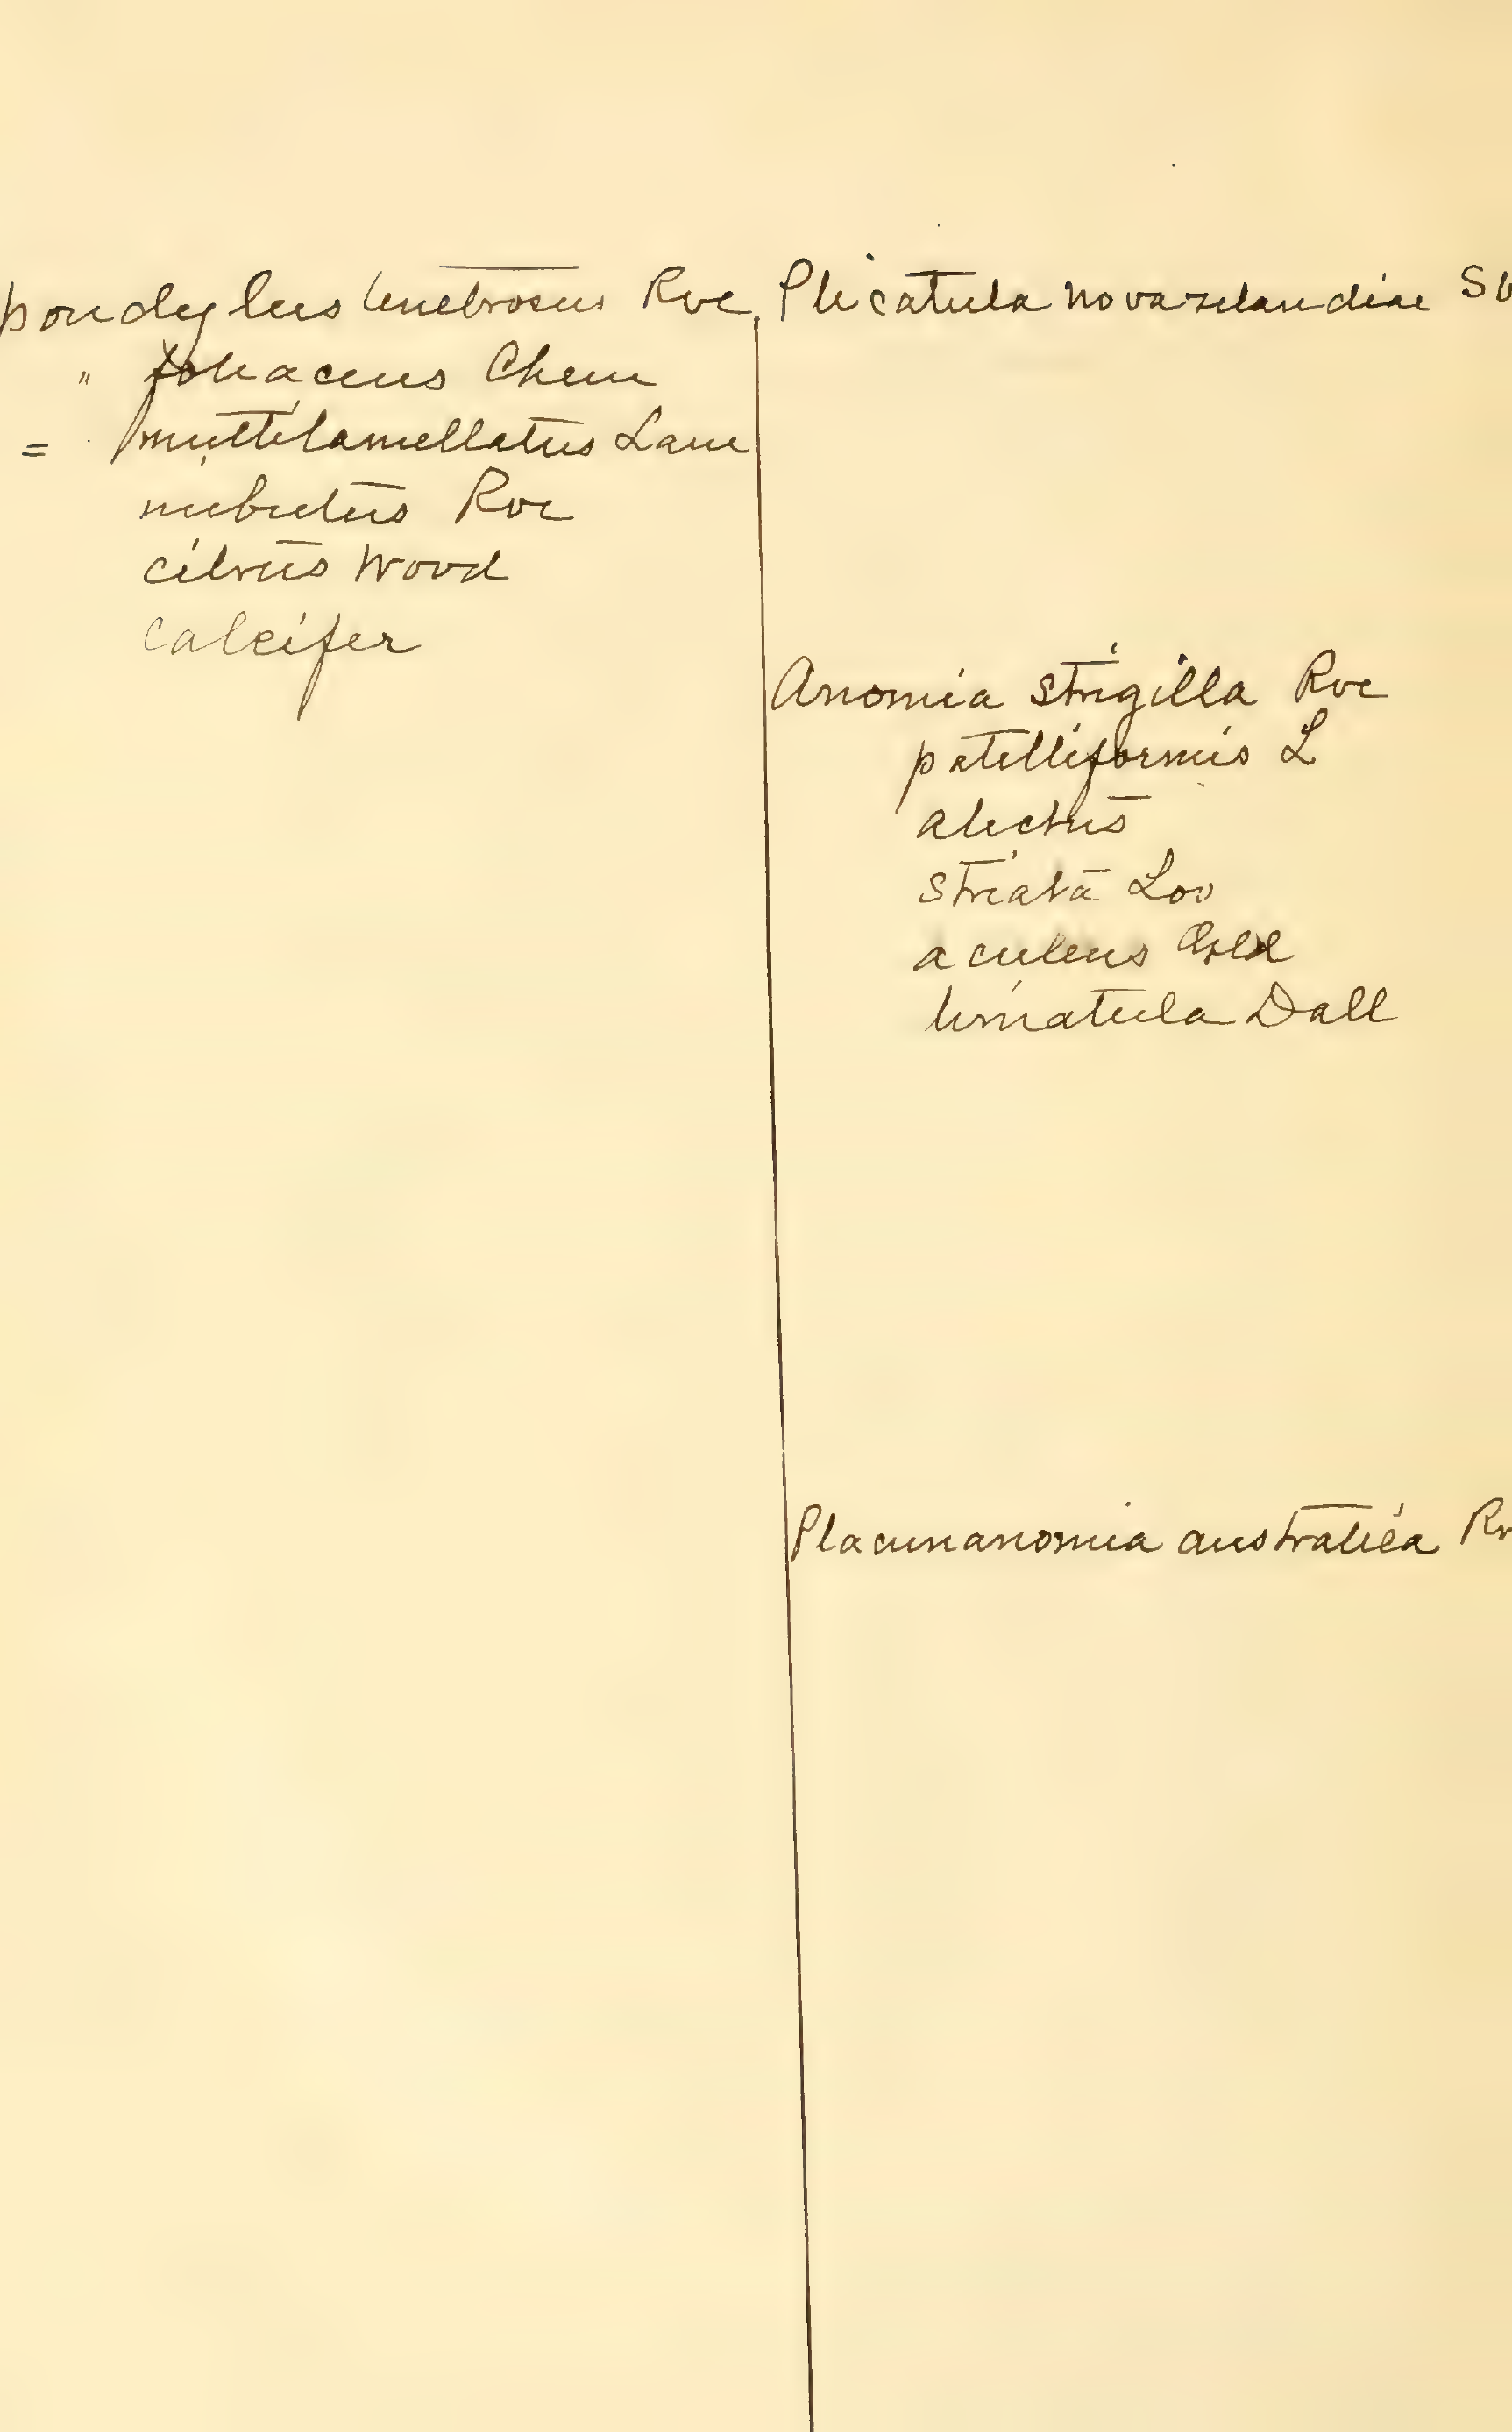 pondylus tenebrosus Rve
" foliaceus Chem
= multilamellatus Lam
nubutus Rve
citrus Wood
calcifer
Plicatula novazelandiae
Anomia strigilla Rve
patelliformis L
alectus
striata Lov
aculeus
limatula Dall
Placunanomia australica